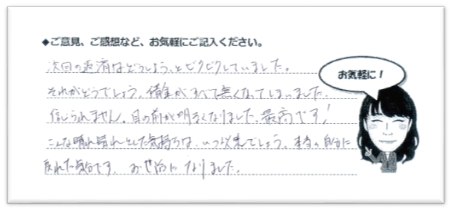 ◆ご意見、ご感想など、お気軽にご記入ください。
次回の返済はどうしよう、とビクビクしていました。
それがどうでしょう、借金がすべて無くなってしまいました。
信じられません。目の前が明るくなりました。最高です!
こんな晴れ晴れとした気持ちは、いつ以来でしょう。本当の自分に
戻れた気分です。お世話になりました。
お気軽に!